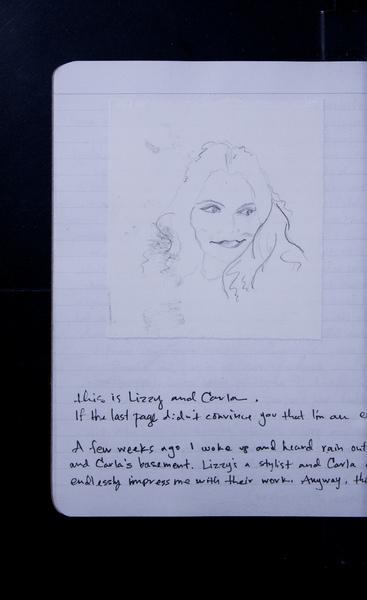 this is Lizzy and Carla.
If the last page didn't convince you that I'm an
A few weeks ago I woke up and heard rain out
and Carla's basement. Lizzy's a stylist and Carla
endlessly impress me with their work. Anyway, the